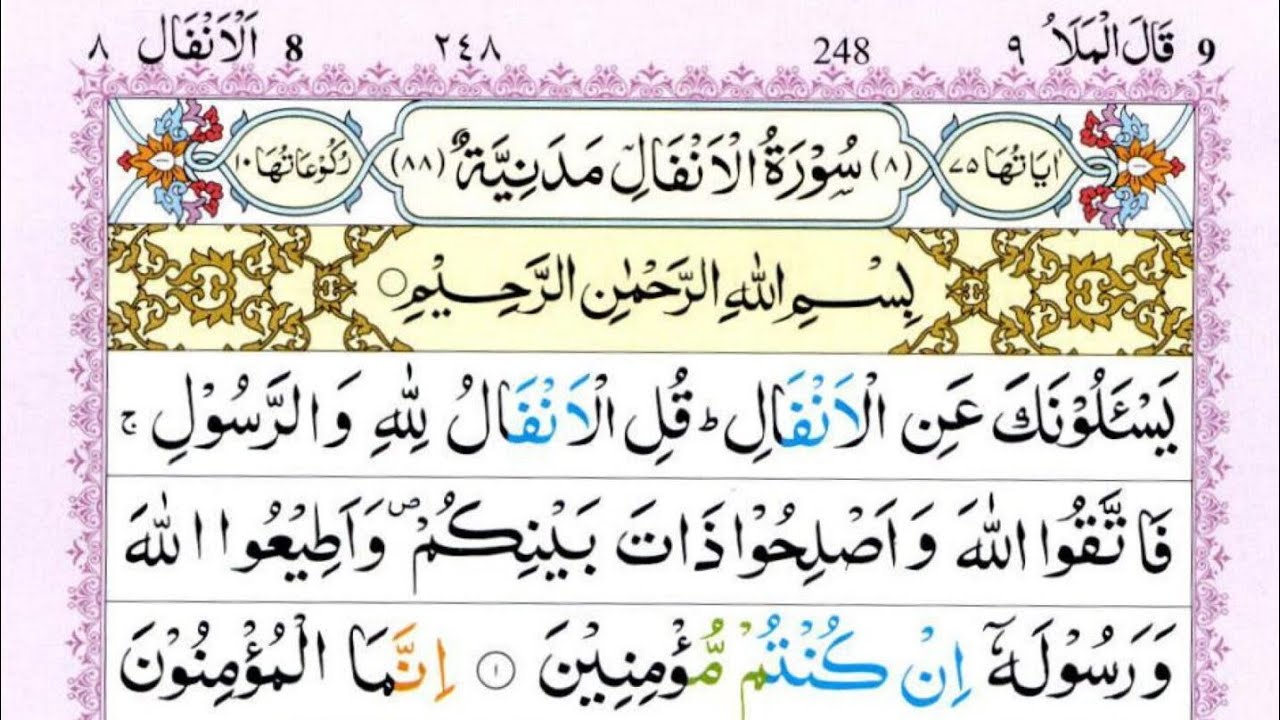 9 قَالَ الْمَلَاُ ٩ 248 ٢٤٨ 8 اَلْاَنْفَال ٨
اٰيَاتُهَا ٧٥ (٨) سُوْرَةُ الْاَنْفَالِ مَدَنِيَّةٌ (٨٨) رُكُوْعَاتُهَا ١٠
بِسْمِ اللّٰهِ الرَّحْمٰنِ الرَّحِيْمِ○
يَسْـَٔلُوْنَكَ عَنِ الْاَنْفَالِ ؕ قُلِ الْاَنْفَالُ لِلّٰهِ وَالرَّسُوْلِ ۚ
فَاتَّقُوا اللّٰهَ وَاَصْلِحُوْا ذَاتَ بَيْنِكُمْ ۪ وَاَطِيْعُوا اللّٰهَ
وَرَسُوْلَهٗۤ اِنْ كُنْتُمْ مُّؤْمِنِيْنَ ١ اِنَّمَا الْمُؤْمِنُوْنَ